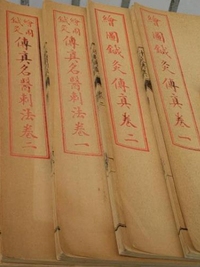 繪圖鍼灸傳真卷一
繪圖鍼灸傳真卷二
繪圖鍼灸傳真名醫刺法卷一
繪圖鍼灸傳真名醫刺法卷二